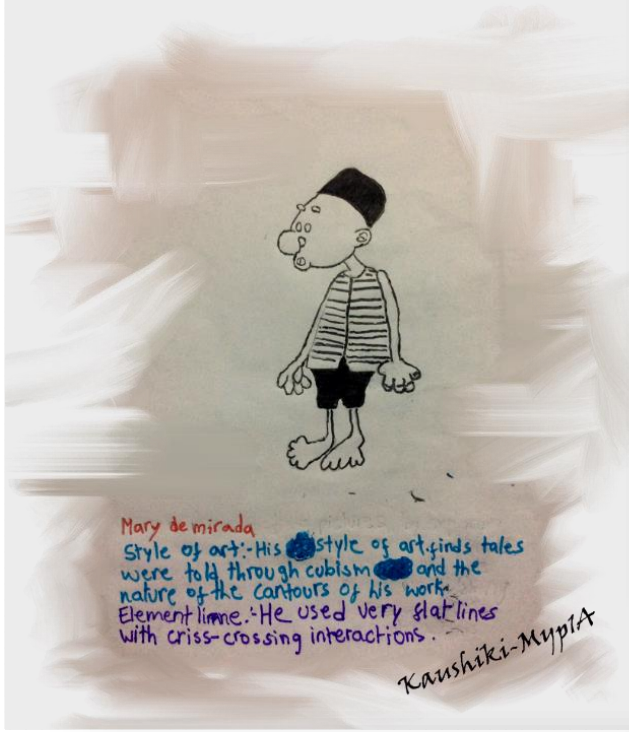 Mary de mirada
Style of art:-His style of art.finds tales
were told through cubism and the
nature of the contours of his work.
Element linne.-He used very flat lines
with criss-crossing interactions.
Kaushiki-Myp1A